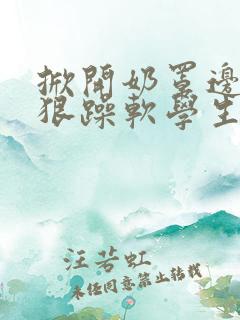 掀開奶罩邊
狠躁軟學生
汪若虹
未经同意禁止转载